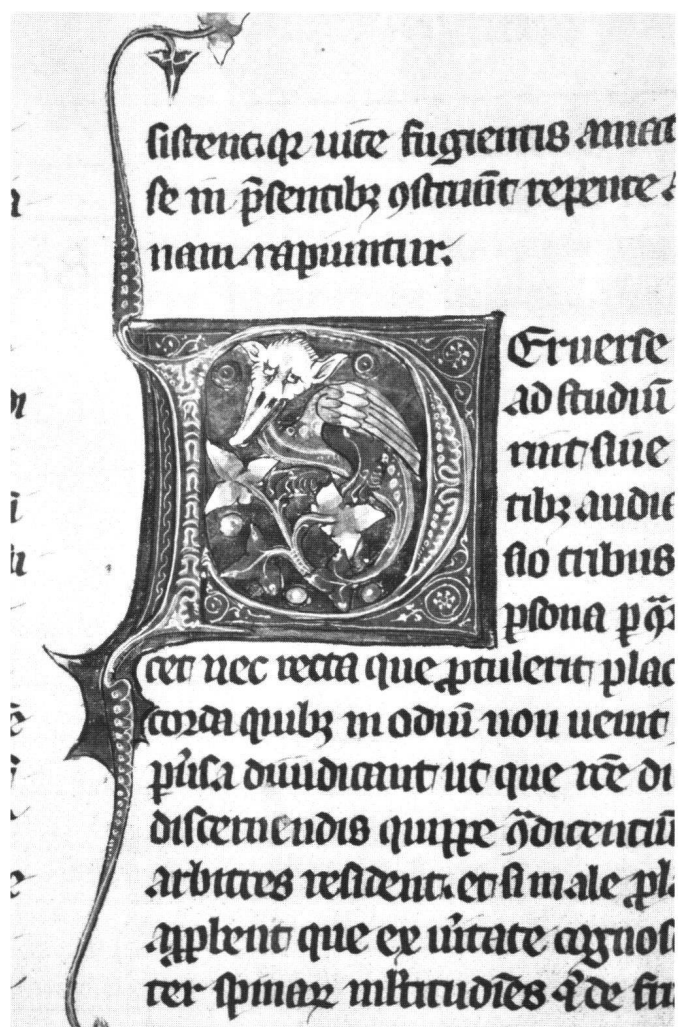 sistentiqꝫ uite fugientis amat
se in p̄sentibꝫ ꝯstruūt repente
nam rapiuntur.
PEruerse
ad studiū
runt siue
tibꝫ audie
sio tribus
ꝑsona ꝑ
cet nec recta que ꝓtulerit plac
corda quibꝫ in odiū non uenit
diiudicant ut que di
discernendis quippe
arbitres resident. et si male
que ex ũitate cognos
ter spinaꝝ de fru